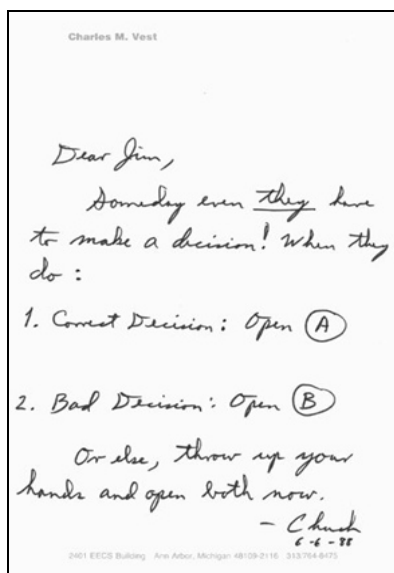 Charles M. Vest
Dear Jim,
Someday even they have
to make a decision! When they
do :
1. Correct Decision: Open A
2. Bad Decision: Open B
Or else, throw up your
hands and open both now.
- Chuck
6-6-88
2401 EECS Building Ann Arbor, Michigan 48109-2116 313/764-8475